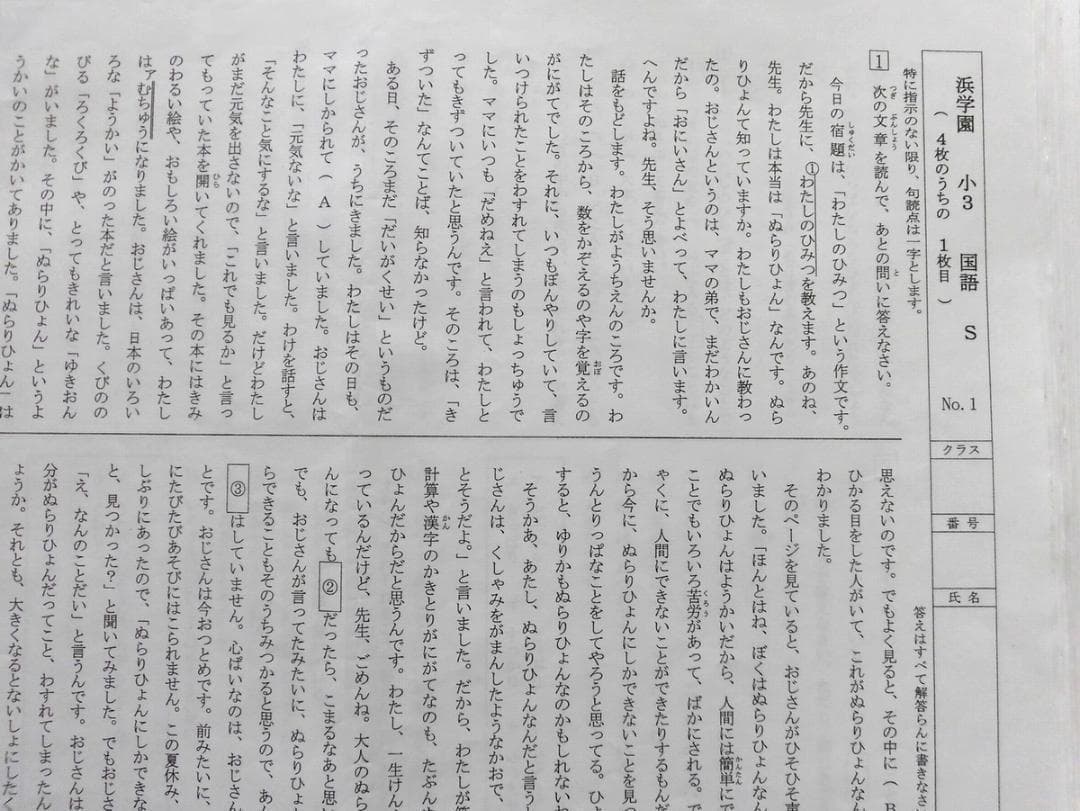 浜学園 小3 国語 S No.1
( 4枚のうちの 1枚目 )
クラス
番号
氏名
特に指示のない限り、句読点は一字とします。
答えはすべて解答らんに書きなさ
1 次の文章を読んで、あとの問いに答えなさい。
今日の宿題は、「わたしのひみつ」という作文です。
だから先生に、①わたしのひみつを教えます。あのね、
先生。わたしは本当は「ぬらりひょん」なんです。ぬら
りひょんて知っていますか。わたしもおじさんに教わっ
たの。おじさんというのは、ママの弟で、まだわかいん
だから「おにいさん」とよべって、わたしに言います。
へんですよね。先生、そう思いませんか。
話をもどします。わたしがようちえんのころです。わ
たしはそのころから、数をかぞえるのや字を覚えるの
がにがてでした。それに、いつもぼんやりしていて、言
いつけられたことをわすれてしまうのもしょっちゅうで
した。ママにいつも「だめねえ」と言われて、わたしと
ってもきずついていたと思うんです。そのころは、「き
ずついた」なんてことば、知らなかったけど。
ある日、そのころまだ「だいがくせい」というものだ
ったおじさんが、うちにきました。わたしはその日も、
ママにしかられて( A )していました。おじさんは
わたしに、「元気ないな」と言いました。わけを話すと、
「そんなこと気にするな」と言いました。だけどわたし
がまだ元気を出さないので、「これでも見るか」と言っ
てもっていた本を開いてくれました。その本にはきみ
のわるい絵や、おもしろい絵がいっぱいあって、わたし
はアむちゅうになりました。おじさんは、日本のいろい
ろな「ようかい」がのった本だと言いました。くびのの
びる「ろくろくび」や、とってもきれいな「ゆきおん
な」がいました。その中に、「ぬらりひょん」というよ
うかいのことがかいてありました。「ぬらりひょん」は
思えないのです。でもよく見ると、その中に( B
ひかる目をした人がいて、これがぬらりひょんなん
わかりました。
そのページを見ていると、おじさんがひそひそ声
いました。「ほんとはね、ぼくはぬらりひょんなん
ぬらりひょんはようかいだから、人間には簡単にで
ことでもいろいろ苦労があって、ばかにされる。で
ゃくに、人間にできないことができたりするもんだ
から今に、ぬらりひょんにしかできないことを見
うんとりっぱなことをしてやろうと思ってる。ひょ
すると、ゆりかもぬらりひょんなのかもしれないわ
そうかあ、あたし、ぬらりひょんなんだと言う
じさんは、くしゃみをがまんしたようなかおで、
とそうだよ。」と言いました。だから、わたしが
計算や漢字のかきとりがにがてなのも、たぶん
ひょんだからだと思うんです。わたし、一生けん
っているんだけど、先生、ごめんね。大人のぬら
んになっても ② だったら、こまるなあと思
でも、おじさんが言ってたみたいに、ぬらりひょ
らできることもそのうちみつかると思うので、あ
③ はしていません。心ぱいなのは、おじさん
とです。おじさんは今おつとめです。前みたいに、
にたびたびあそびにはこられません。この夏休み、
しぶりにあったので、「ぬらりひょんにしかできな
と、見つかった?」と聞いてみました。でもおじさ
「え、なんのことだい」と言うんです。おじさんは
分がぬらりひょんだってこと、わすれてしまったん
ょうか。それとも、大きくなるとないしょにしたく